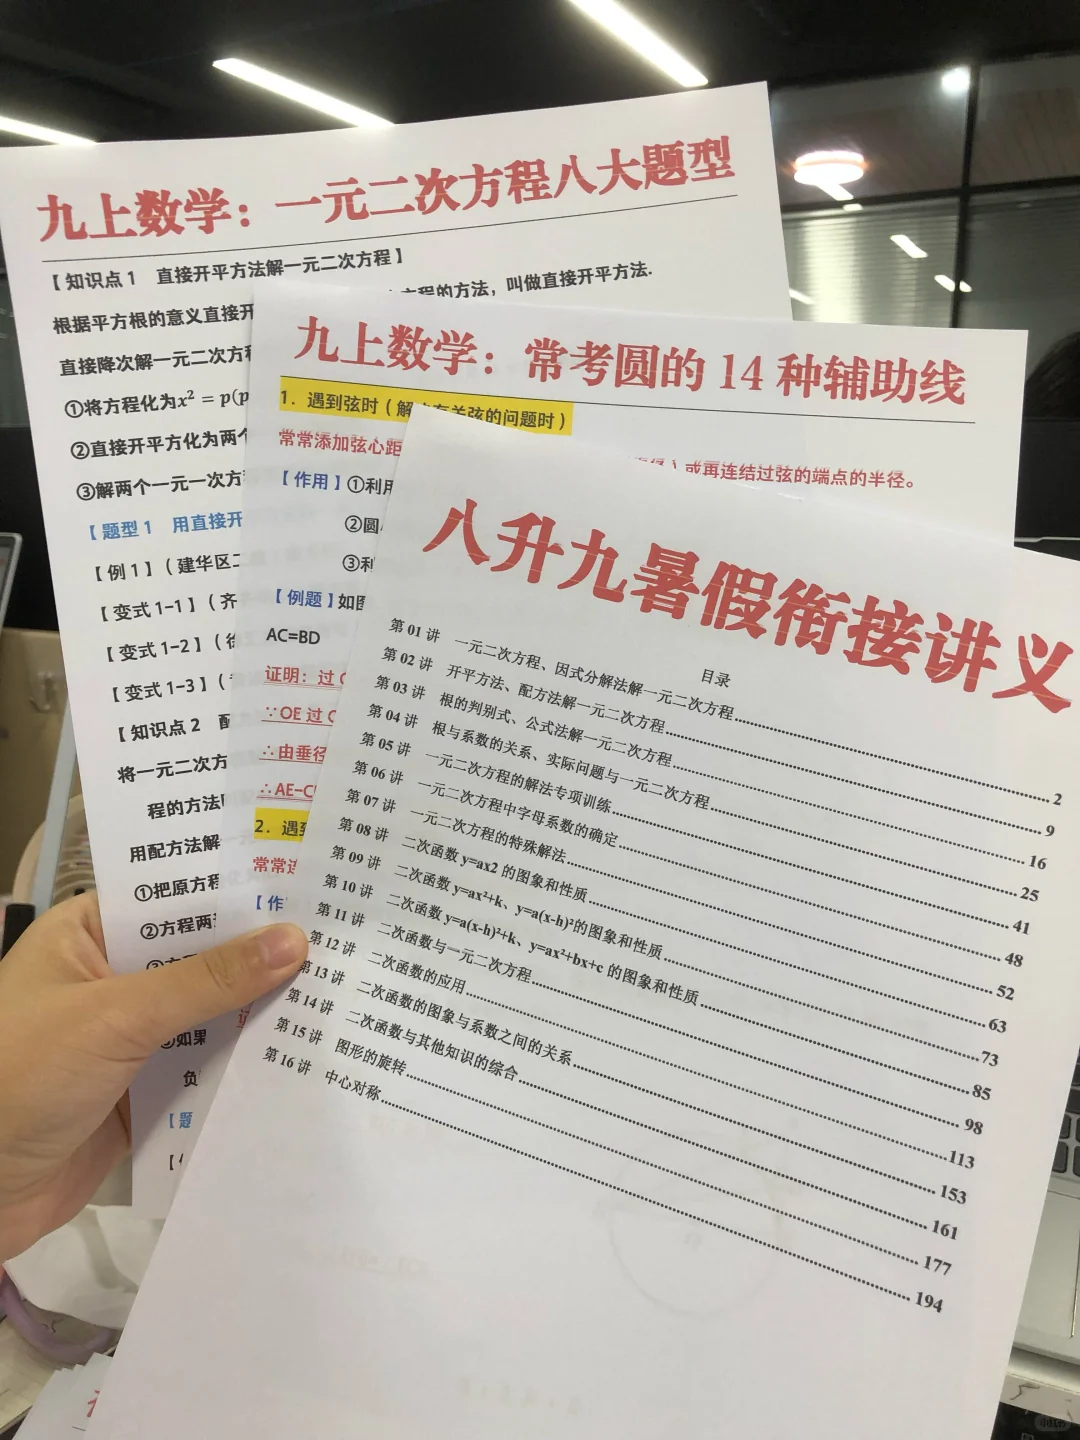 九上数学：一元二次方程八大题型
【知识点1 直接开平方法解一元二次方程】
根据平方根的意义直接开
方程的方法，叫做直接开平方法.
直接降次解一元二次方
①将方程化为x² = p(p
②直接开平方化为两个
③解两个一元一次方
【题型1 用直接开
【例1】（建华区二
【变式1-1】（齐
【变式1-2】（
【变式1-3】（
【知识点2 配
将一元二次方
程的方法
用配方法解一
①把原方程
②方程两
如果
负
【题
九上数学：常考圆的14种辅助线
1. 遇到弦时（解决有关弦的问题时）
常常添加弦心距
或再连结过弦的端点的半径。
【作用】①利用
②圆
③利
【例题】如图
AC=BD
证明：过
∵OE过
∴由垂径
∴AE-C
2. 遇到
常常连
【作
八升九暑假衔接讲义
目录
第01讲 一元二次方程、因式分解法解一元二次方程 2
第02讲 开平方法、配方法解一元二次方程 9
第03讲 根的判别式、公式法解一元二次方程 16
第04讲 根与系数的关系、实际问题与一元二次方程 25
第05讲 一元二次方程的解法专项训练 41
第06讲 一元二次方程中字母系数的确定 48
第07讲 一元二次方程的特殊解法 52
第08讲 二次函数y=ax2的图象和性质 63
第09讲 二次函数y=ax²+k、y=a(x-h)²的图象和性质 73
第10讲 二次函数y=a(x-h)²+k、y=ax²+bx+c的图象和性质 85
第11讲 二次函数与一元二次方程 98
第12讲 二次函数的应用 113
第13讲 二次函数的图象与系数之间的关系 153
第14讲 二次函数与其他知识的综合 161
第15讲 图形的旋转 177
第16讲 中心对称 194